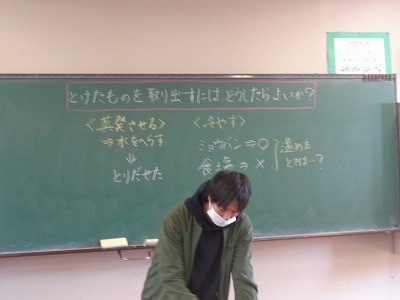 とけたものを取り出すにはどうしたらよいか?
<蒸発させる>
⇒水をへらす
⇓
とりだせた
<冷やす>
ミョウバン⇒○
食塩⇒×
温める
ときは…?